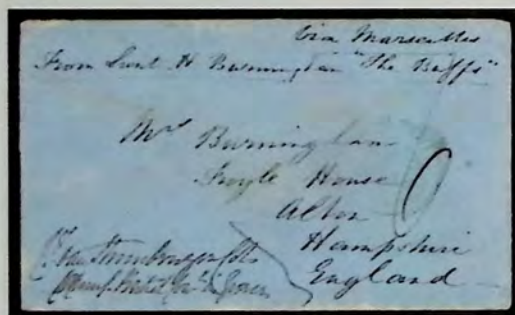 Via Marseilles
From Lieut H Burningham "The Buffs"
Mrs Burningham
Froyle House
Alton
Hampshire
England